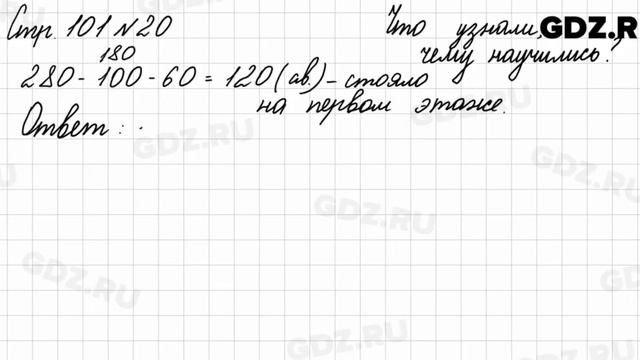 Стр. 101 N 20
Что узнали,
чему научились?
180
280 - 100 - 60 = 120 (ав.) - стояло
на первом этаже.
Ответ: .
GDZ.R
GDZ.RU
GDZ.RU
GDZ.RU
GDZ.RU
GDZ.RU